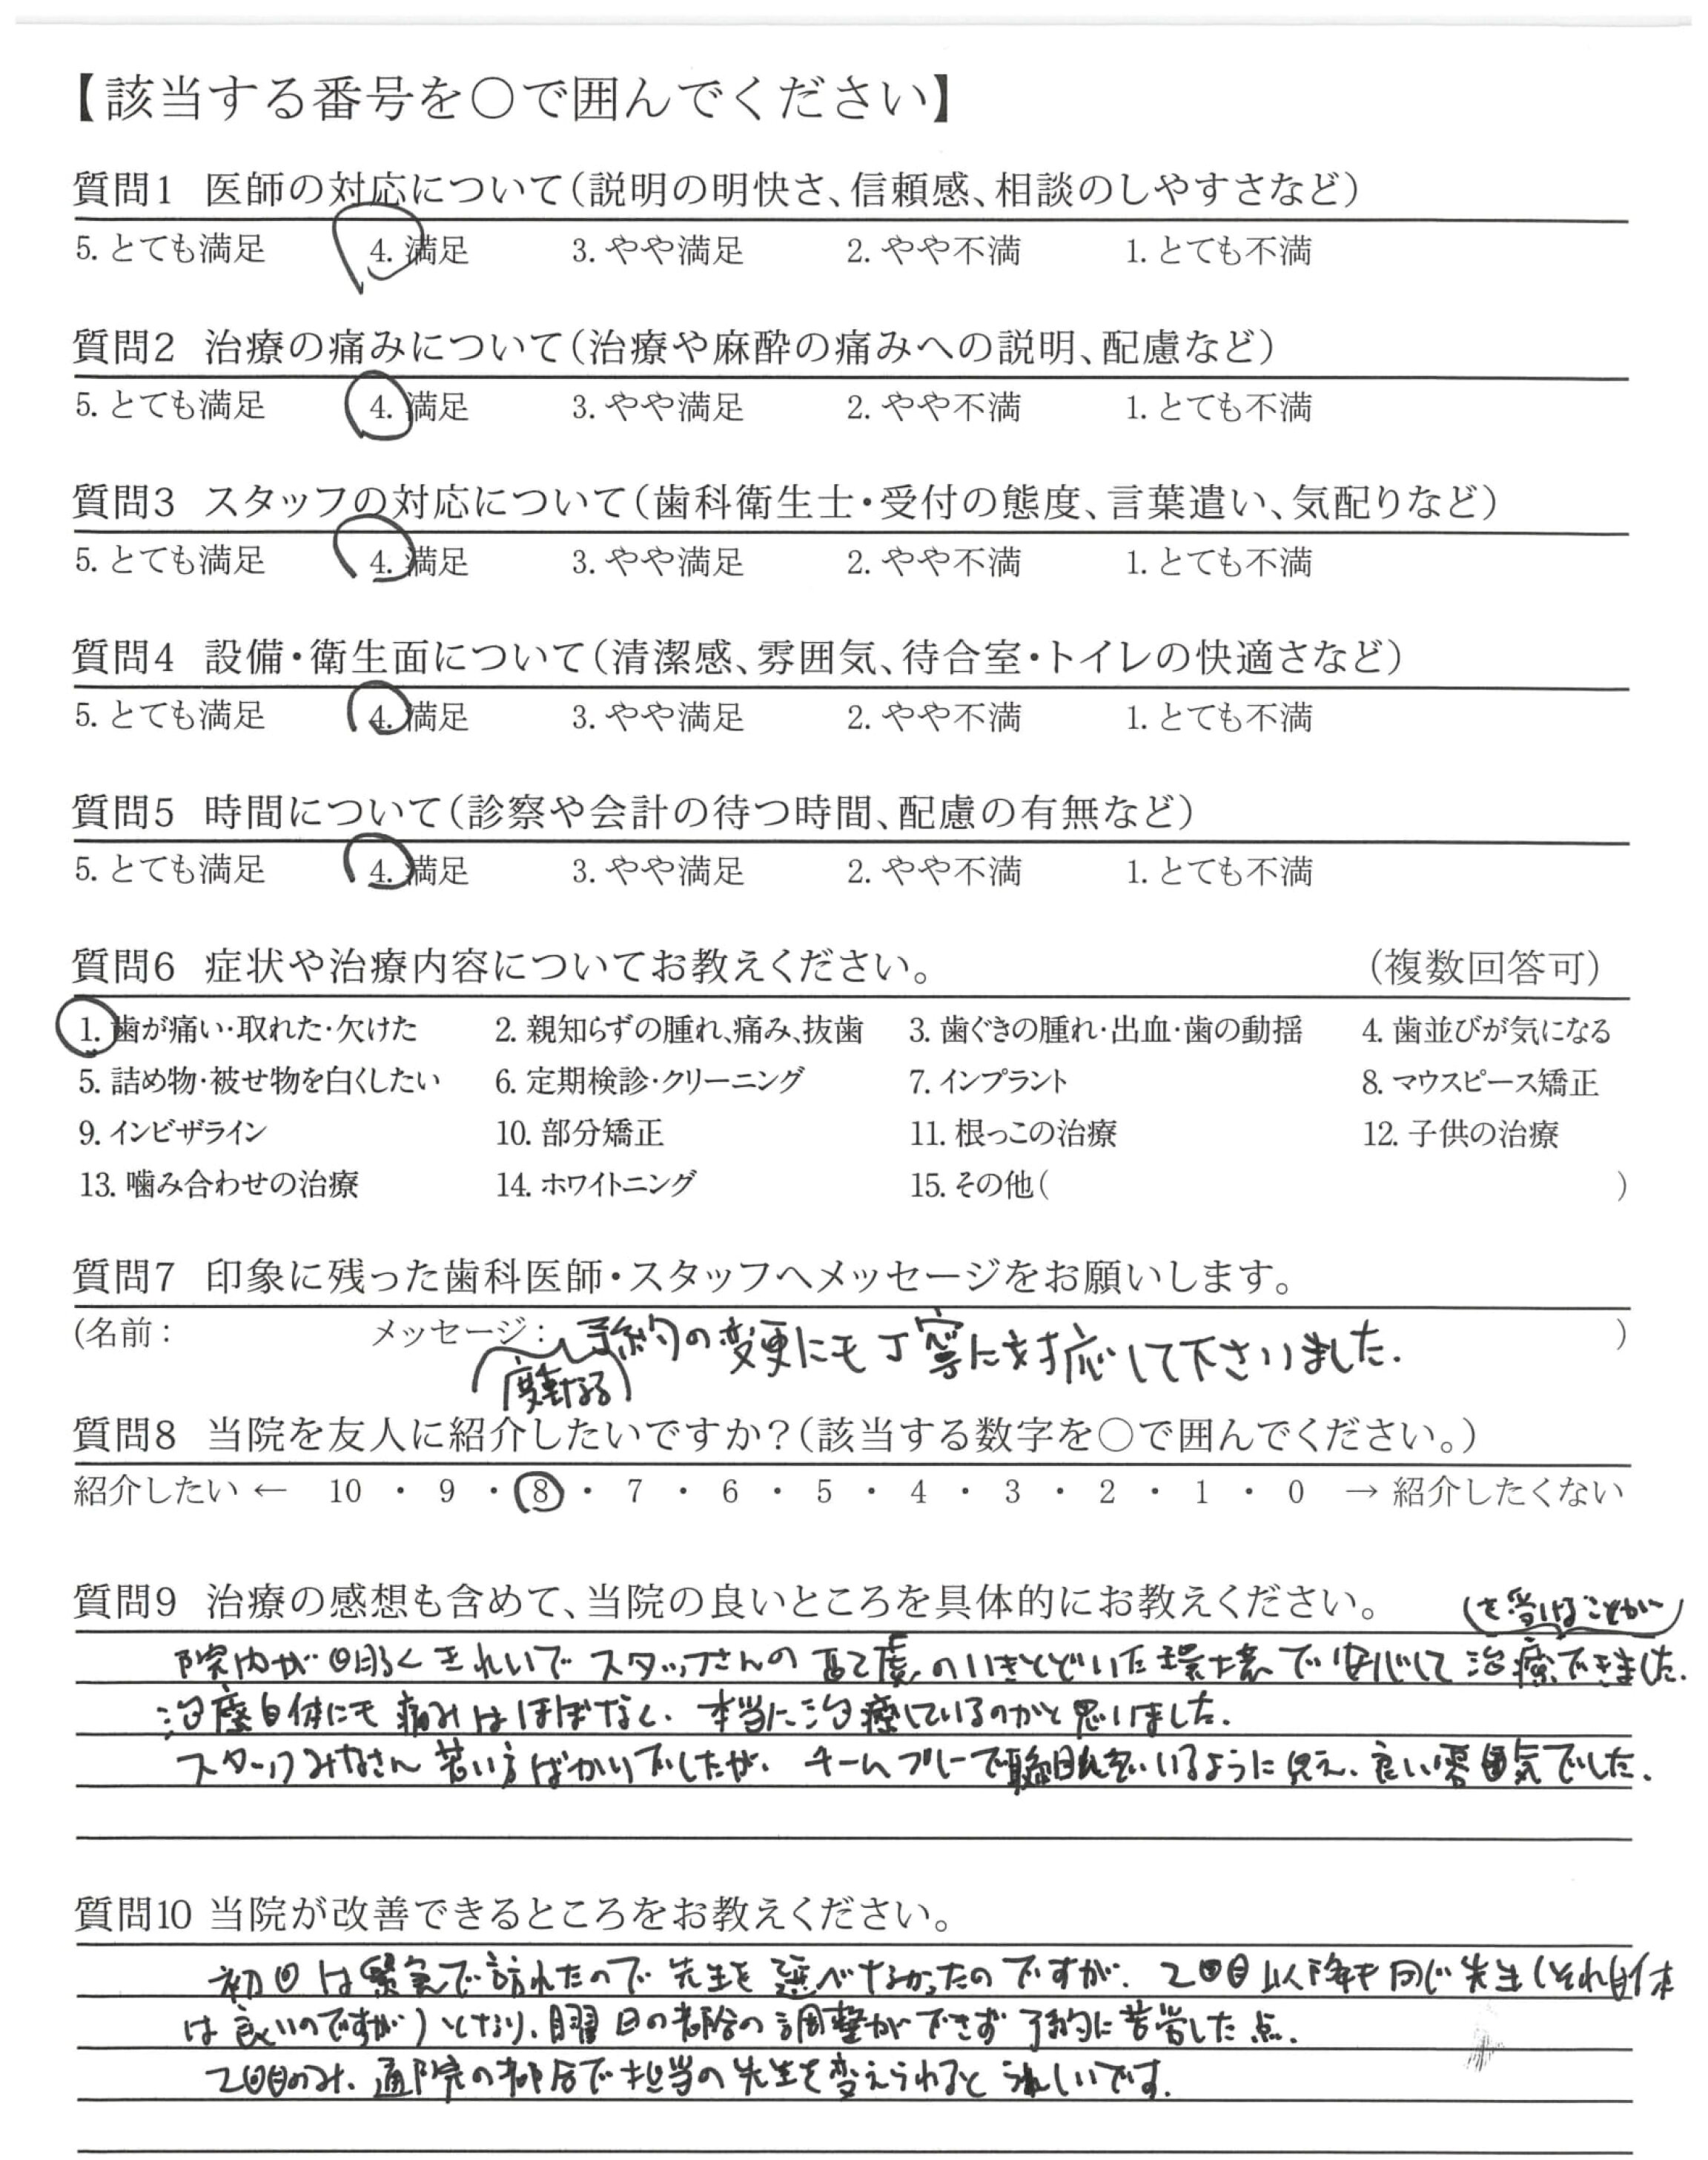 【該当する番号を○で囲んでください】
質問1 医師の対応について(説明の明快さ、信頼感、相談のしやすさなど)
5. とても満足 4. 満足 3. やや満足 2. やや不満 1. とても不満
質問2 治療の痛みについて(治療や麻酔の痛みへの説明、配慮など)
5. とても満足 4. 満足 3. やや満足 2. やや不満 1. とても不満
質問3 スタッフの対応について(歯科衛生士・受付の態度、言葉遣い、気配りなど)
5. とても満足 4. 満足 3. やや満足 2. やや不満 1. とても不満
質問4 設備・衛生面について(清潔感、雰囲気、待合室・トイレの快適さなど)
5. とても満足 4. 満足 3. やや満足 2. やや不満 1. とても不満
質問5 時間について(診察や会計の待つ時間、配慮の有無など)
5. とても満足 4. 満足 3. やや満足 2. やや不満 1. とても不満
質問6 症状や治療内容についてお教えください。 (複数回答可)
1. 歯が痛い・取れた・欠けた 2. 親知らずの腫れ、痛み、抜歯 3. 歯ぐきの腫れ・出血・歯の動揺 4. 歯並びが気になる
5. 詰め物・被せ物を白くしたい 6. 定期検診・クリーニング 7. インプラント 8. マウスピース矯正
9. インビザライン 10. 部分矯正 11. 根っこの治療 12. 子供の治療
13. 噛み合わせの治療 14. ホワイトニング 15. その他( )
質問7 印象に残った歯科医師・スタッフへメッセージをお願いします。
(名前: メッセージ: 予約の変更にも丁寧に対応して下さいました. )
度重なる
質問8 当院を友人に紹介したいですか?(該当する数字を○で囲んでください。)
紹介したい ← 10 ・ 9 ・ 8 ・ 7 ・ 6 ・ 5 ・ 4 ・ 3 ・ 2 ・ 1 ・ 0 → 紹介したくない
質問9 治療の感想も含めて、当院の良いところを具体的にお教えください。
を受けることが
院内が明るくきれいでスタッフさんの配慮のいきとどいた環境で安心して治療できました.
治療自体にも痛みはほぼなく、本当に治療しているのかと思いました.
スタッフみなさん若い方ばかりでしたが、チームプレーで いるように見え、良い雰囲気でした.
質問10 当院が改善できるところをお教えください。
初回は緊急で訪れたので先生を選べなかったのですが、2回目以降も同じ先生(それ自体
は良いのですが)となり、曜日の都合の調整ができず予約に苦労した点.
2回目のみ、通院の都合で担当の先生を変えられるとうれしいです.